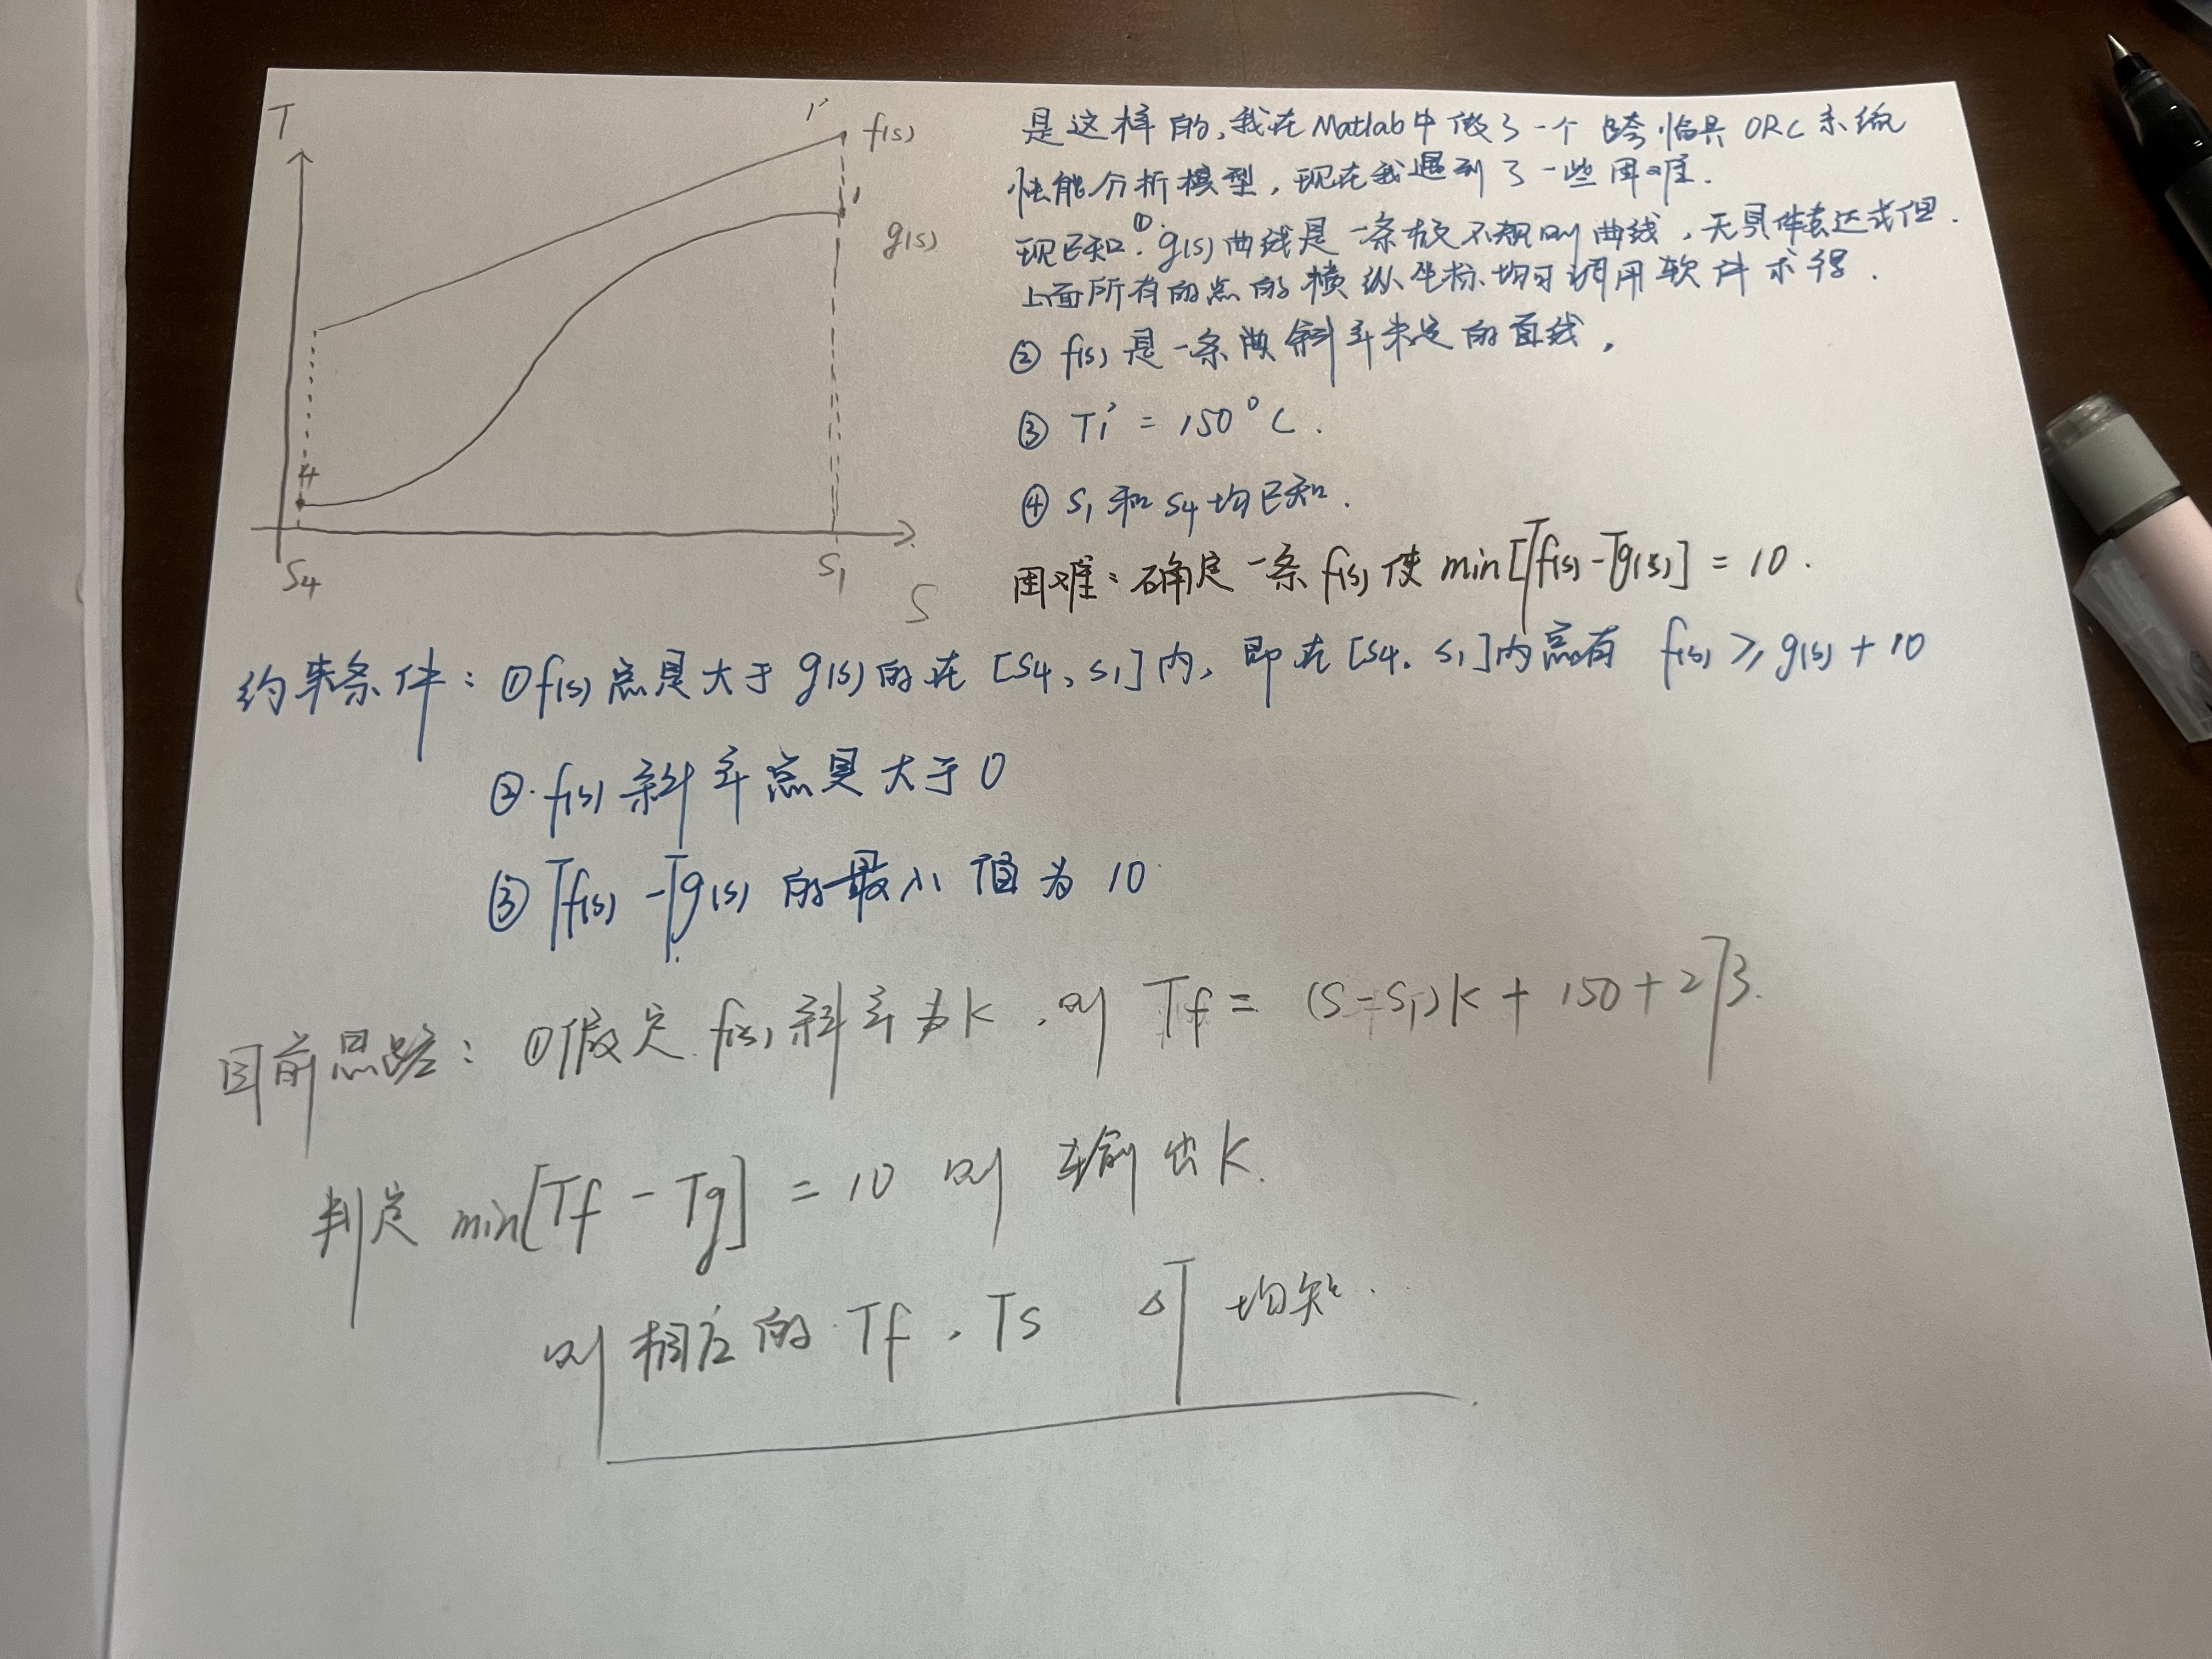 T
1' f(s)
1
g(s)
4
S4
S1
S
是这样的,我在Matlab中做了一个跨临界ORC系统
性能分析模型,现在我遇到了一些困难.
现已知:①g(s)曲线是一条极不规则曲线,无具体表达式但.
上面所有的点的横纵坐标均可调用软件求得.
② f(s)是一条斜率未定的直线,
③ T1' = 150°C.
④ S1和S4均已知.
困难:确定一条f(s)使min[Tf(s)-Tg(s)] = 10.
约束条件:①f(s)总是大于g(s)的在[S4、S1]内,即在[S4、S1]内总有 f(s) ≥ g(s) + 10
②.f(s)斜率总是大于0
③ Tf(s) - Tg(s)的最小值为10
目前思路:①假定f(s)斜率为K,则 Tf = (S-S1)K + 150 + 273.
判定min[Tf - Tg] = 10 则输出K.
则相应的Tf、Ts ΔT 均知..